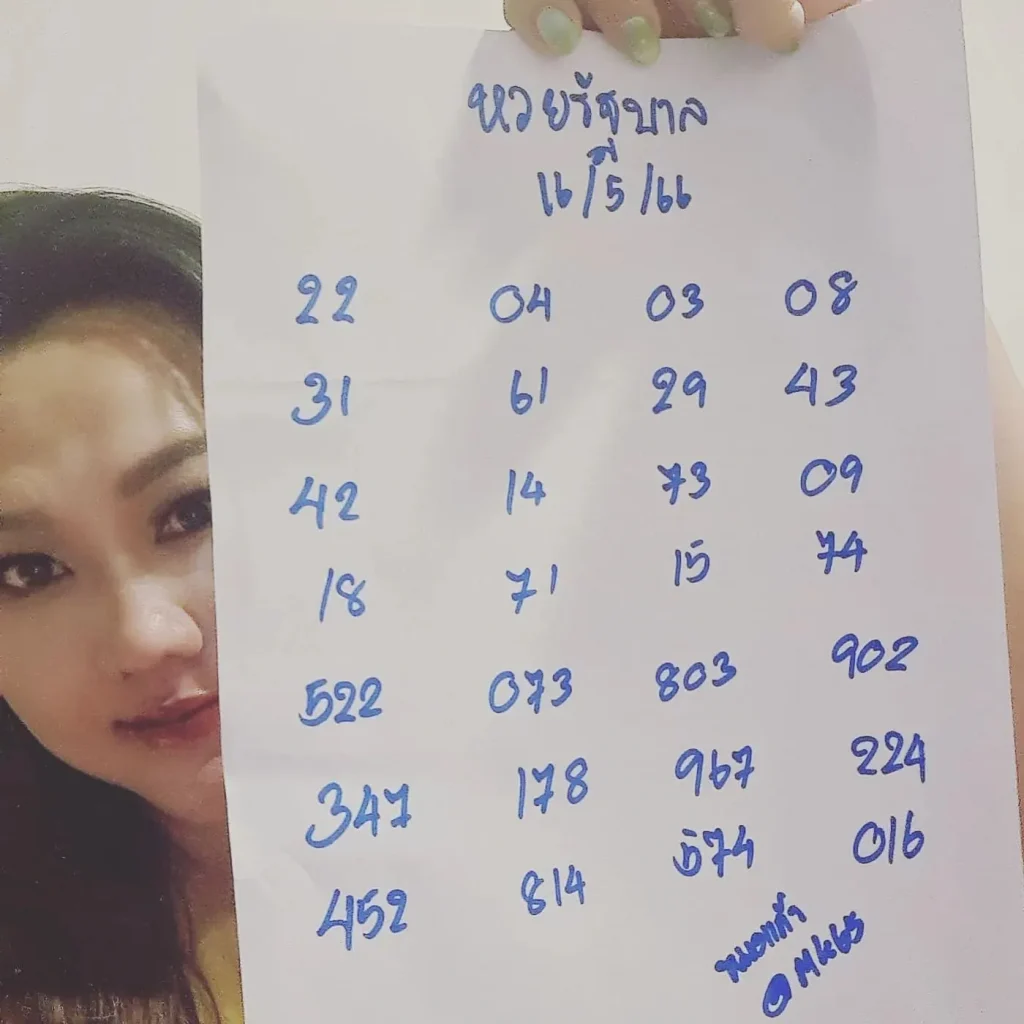 หวยรัฐบาล
16/5/66
22 04 03 08
31 61 29 43
42 14 73 09
18 71 15 74
522 073 803 902
347 178 967 224
452 814 574 016
หมอเก้า
@Mk65